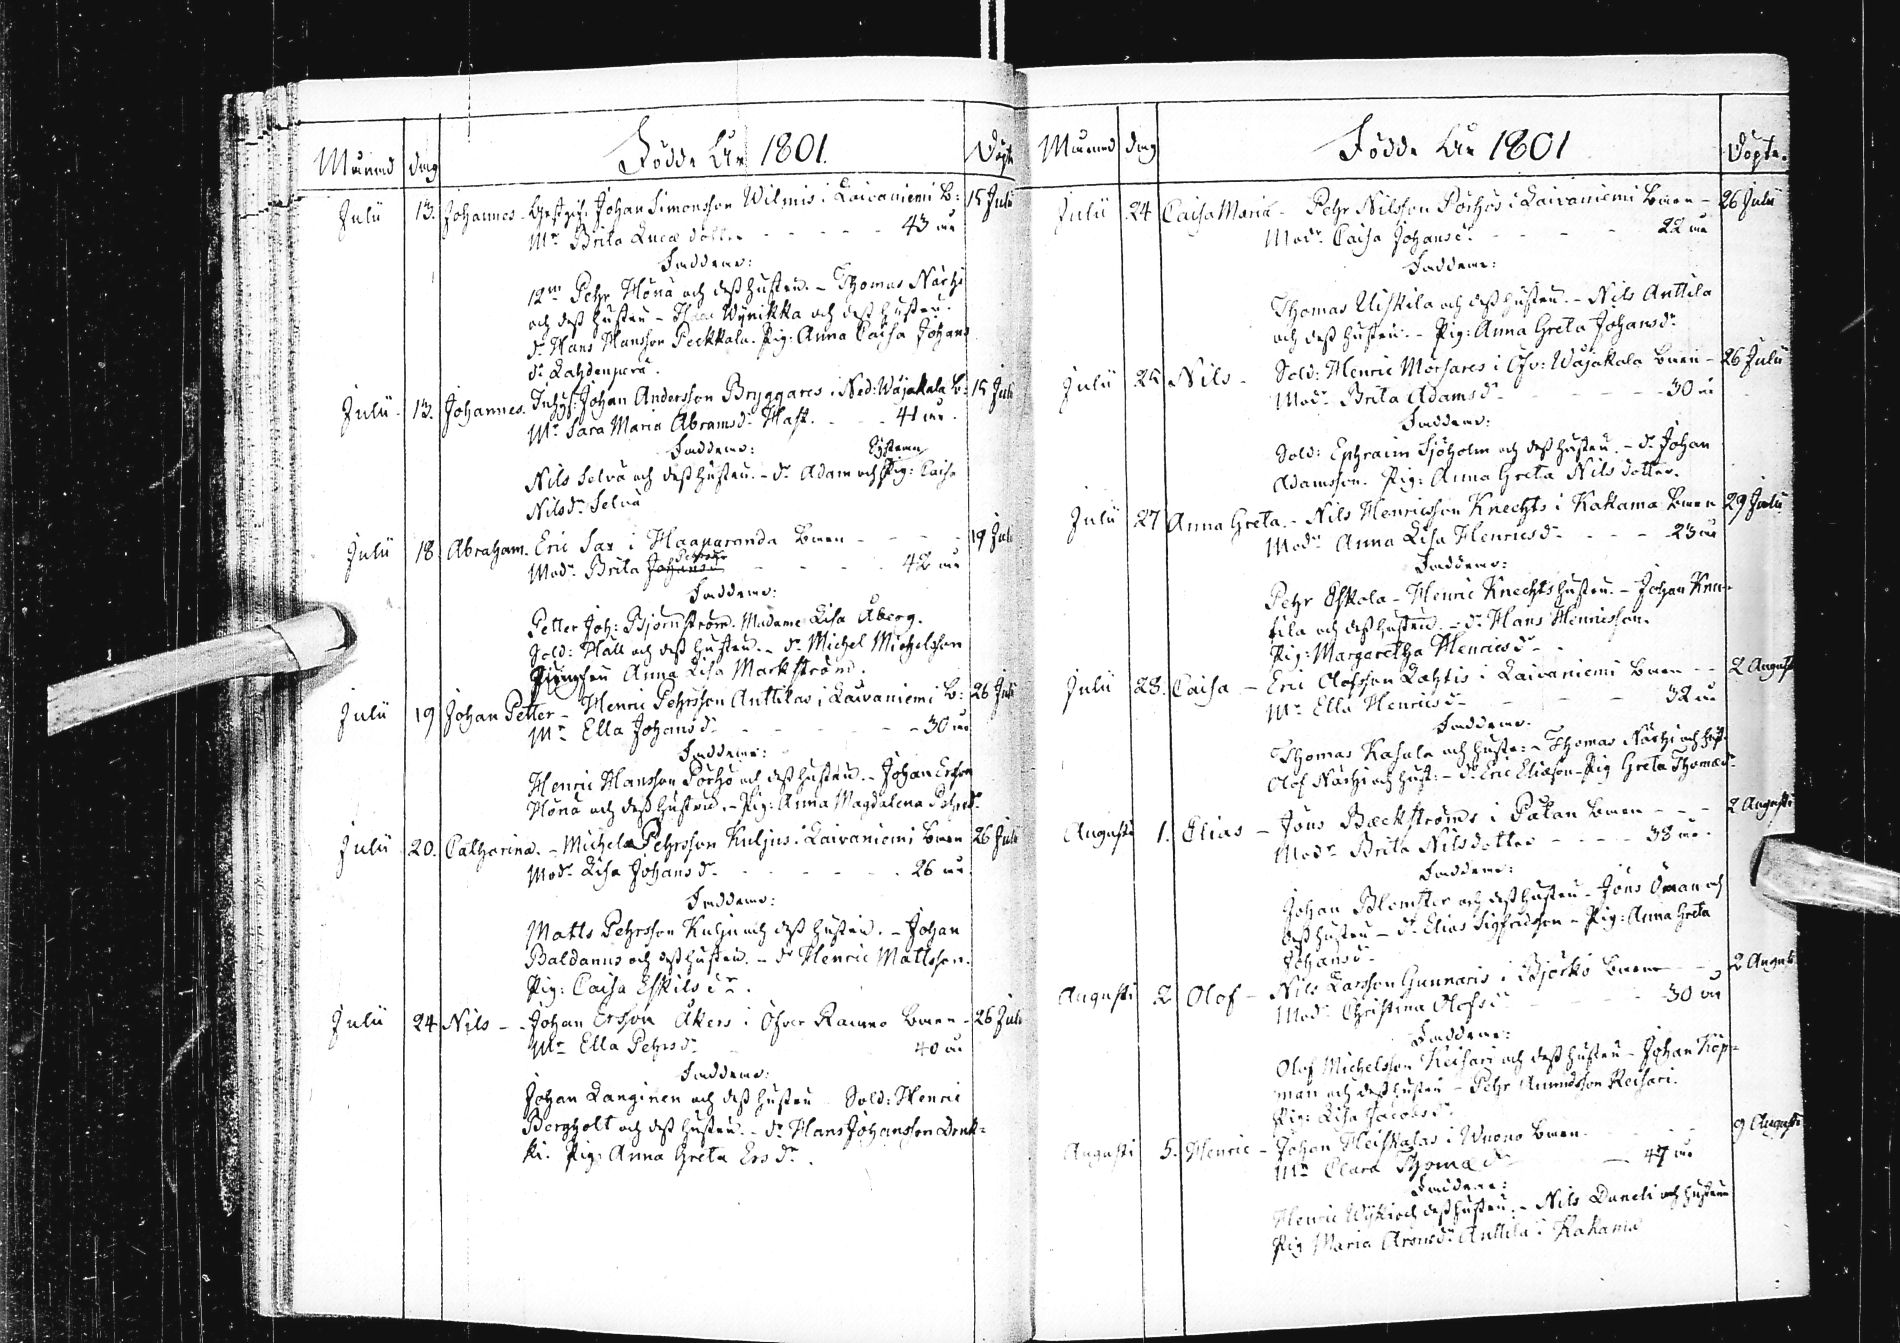 Månad dag Födde År 1801. Döpt
Julii 13. Johannes. Johan Simonsson Wilmis i Laivaniemi B: 15 Julii
Mr Brita Lucæ dotter - - - - - 43 år
Faddrar:
Pehr Nönä och dess hustru. - Thomas Närhi
och dess hustru - Wynikka och dess hustru.
dr Hans Hansson Peckkala. Pig: Anna Caisa Johans
dr
Julii 13. Johannes. Inhys: Johan Andersson Bryggares i Ned: Wojakala B: 15 Julii
Mr Sara Maria Abramsdr - - 41 år.
Faddrar: Systern
Nils Selvä och dess hustru. - dr Adam och Pig: Caisa
Nilsdr Selvä
Julii 18 Abraham. Eric Sax i Haaparanda Barn - - - 19 Julii
Modr Brita - - - - 42 år
Faddrar:
Petter Joh: Björnström. Madame Lisa Åberg.
Sold: Häll och dess hustru. - dr Michel Michelsson
Anna Lisa Markström.
Julii 19 Johan Petter - Henric Pehrsson Anttilas i Laivaniemi B: 26 Julii
Mr Ella Johansdr - - - - 30 år
Faddrar:
Henric Hansson Pörhö och dess hustru. - Johan Ersson
Nönä och dess hustru. - Pig: Anna Magdalena Pehrsdr
Julii 20. Catharina. - Michel Pehrsson Kuljus i Laivaniemi Barn 26 Julii
Modr Lisa Johansdr - - - - 26 år.
Faddrar:
Matts Pehrsson Kulju och dess hustru. - Johan
Baldanus och dess hustru. - dr Henric Mattsson.
Pig: Caisa Eskilsdr.
Julii 24 Nils - - Johan Ersson Åkers i Öfver Raumo Barn - 26 Julii
Mr Ella Pehrsdr 40 år
Faddrar:
Johan Langinen och dess hustru Sold: Henric
Bergholt och dess hustru. - dr Hans Johansson
Pig: Anna Greta Ersdr.
Månad dag Födde År 1801 Döpte.
Julii 24 Caisa Maria - Pehr Nilsson Pörhös i Laivaniemi Barn - 26 Julii
Modr Caisa Johansdr - - - - 22 år
Faddrar:
Thomas Uiskila och dess hustru. - Nils Anttila
och dess hustru. - Pig: Anna Greta Johansdr
Julii 25 Nils - Sold: Henric Morsares i Öfv: Wojakala Barn - 26 Julii
Modr Brita Adamsdr - - - - 30 år
Faddrar:
Sold: Ephraim Sjöholm och dess hustru. - dr Johan
Adamsson. Pig: Anna Greta Nils dotter.
Julii 27 Anna Greta. - Nils Henricsson Knechts i Kakama Barn 29 Julii
Modr Anna Lisa Henricsdr - - - 23 år
Faddrar:
Pehr Eskola - Henric Knechts hustru. - Johan
och dess hustru. - dr Hans Henricsson.
Pig: Margaretha Henricsdr -
Julii 28. Caisa - Eric Olofsson Lahtis i Laivaniemi Barn - - 2 Augusti
Mr Ella Henricsdr - - - 32 år
Faddrar.
Thomas Kasala och hustr: - Thomas Närhi och hust:
Olof Närhi och hust: - dr Eric Eliæson - Pig Greta Thomædr -
Augusti 1. Elias - Jöns Bæckströms i Båtan Barn - - - 2 Augusti
Modr Brita Nilsdotter - - - - 38 år.
Faddrar:
Johan Blomster och dess hustru - Jöns Öman och
dess hustru - dr Elias Sigfridsson - Pig: Anna Greta
Johansdr -
Augusti 2 Olof - Nils Larsson Gunnaris i Björkö Barn - - 2 Augusti
Modr Christina Olofsdr - - - 30 år
Faddrar:
Olof Michelsson Keisari och dess hustru - Johan Köp-
man och dess hustru - Pehr Amundsson Keisari.
Pig: Lisa Jacobsdr
Augusti 5. Henric - Johan Heiskalas i Wuono Barn. - - - 9 Augusti
Mr Clara Thomædr - - 47 år
Faddrar:
Henric Wyki och dess hustru. - Nils Daneli och hustru
Pig Maria Aronsdr Anttila i Kakama